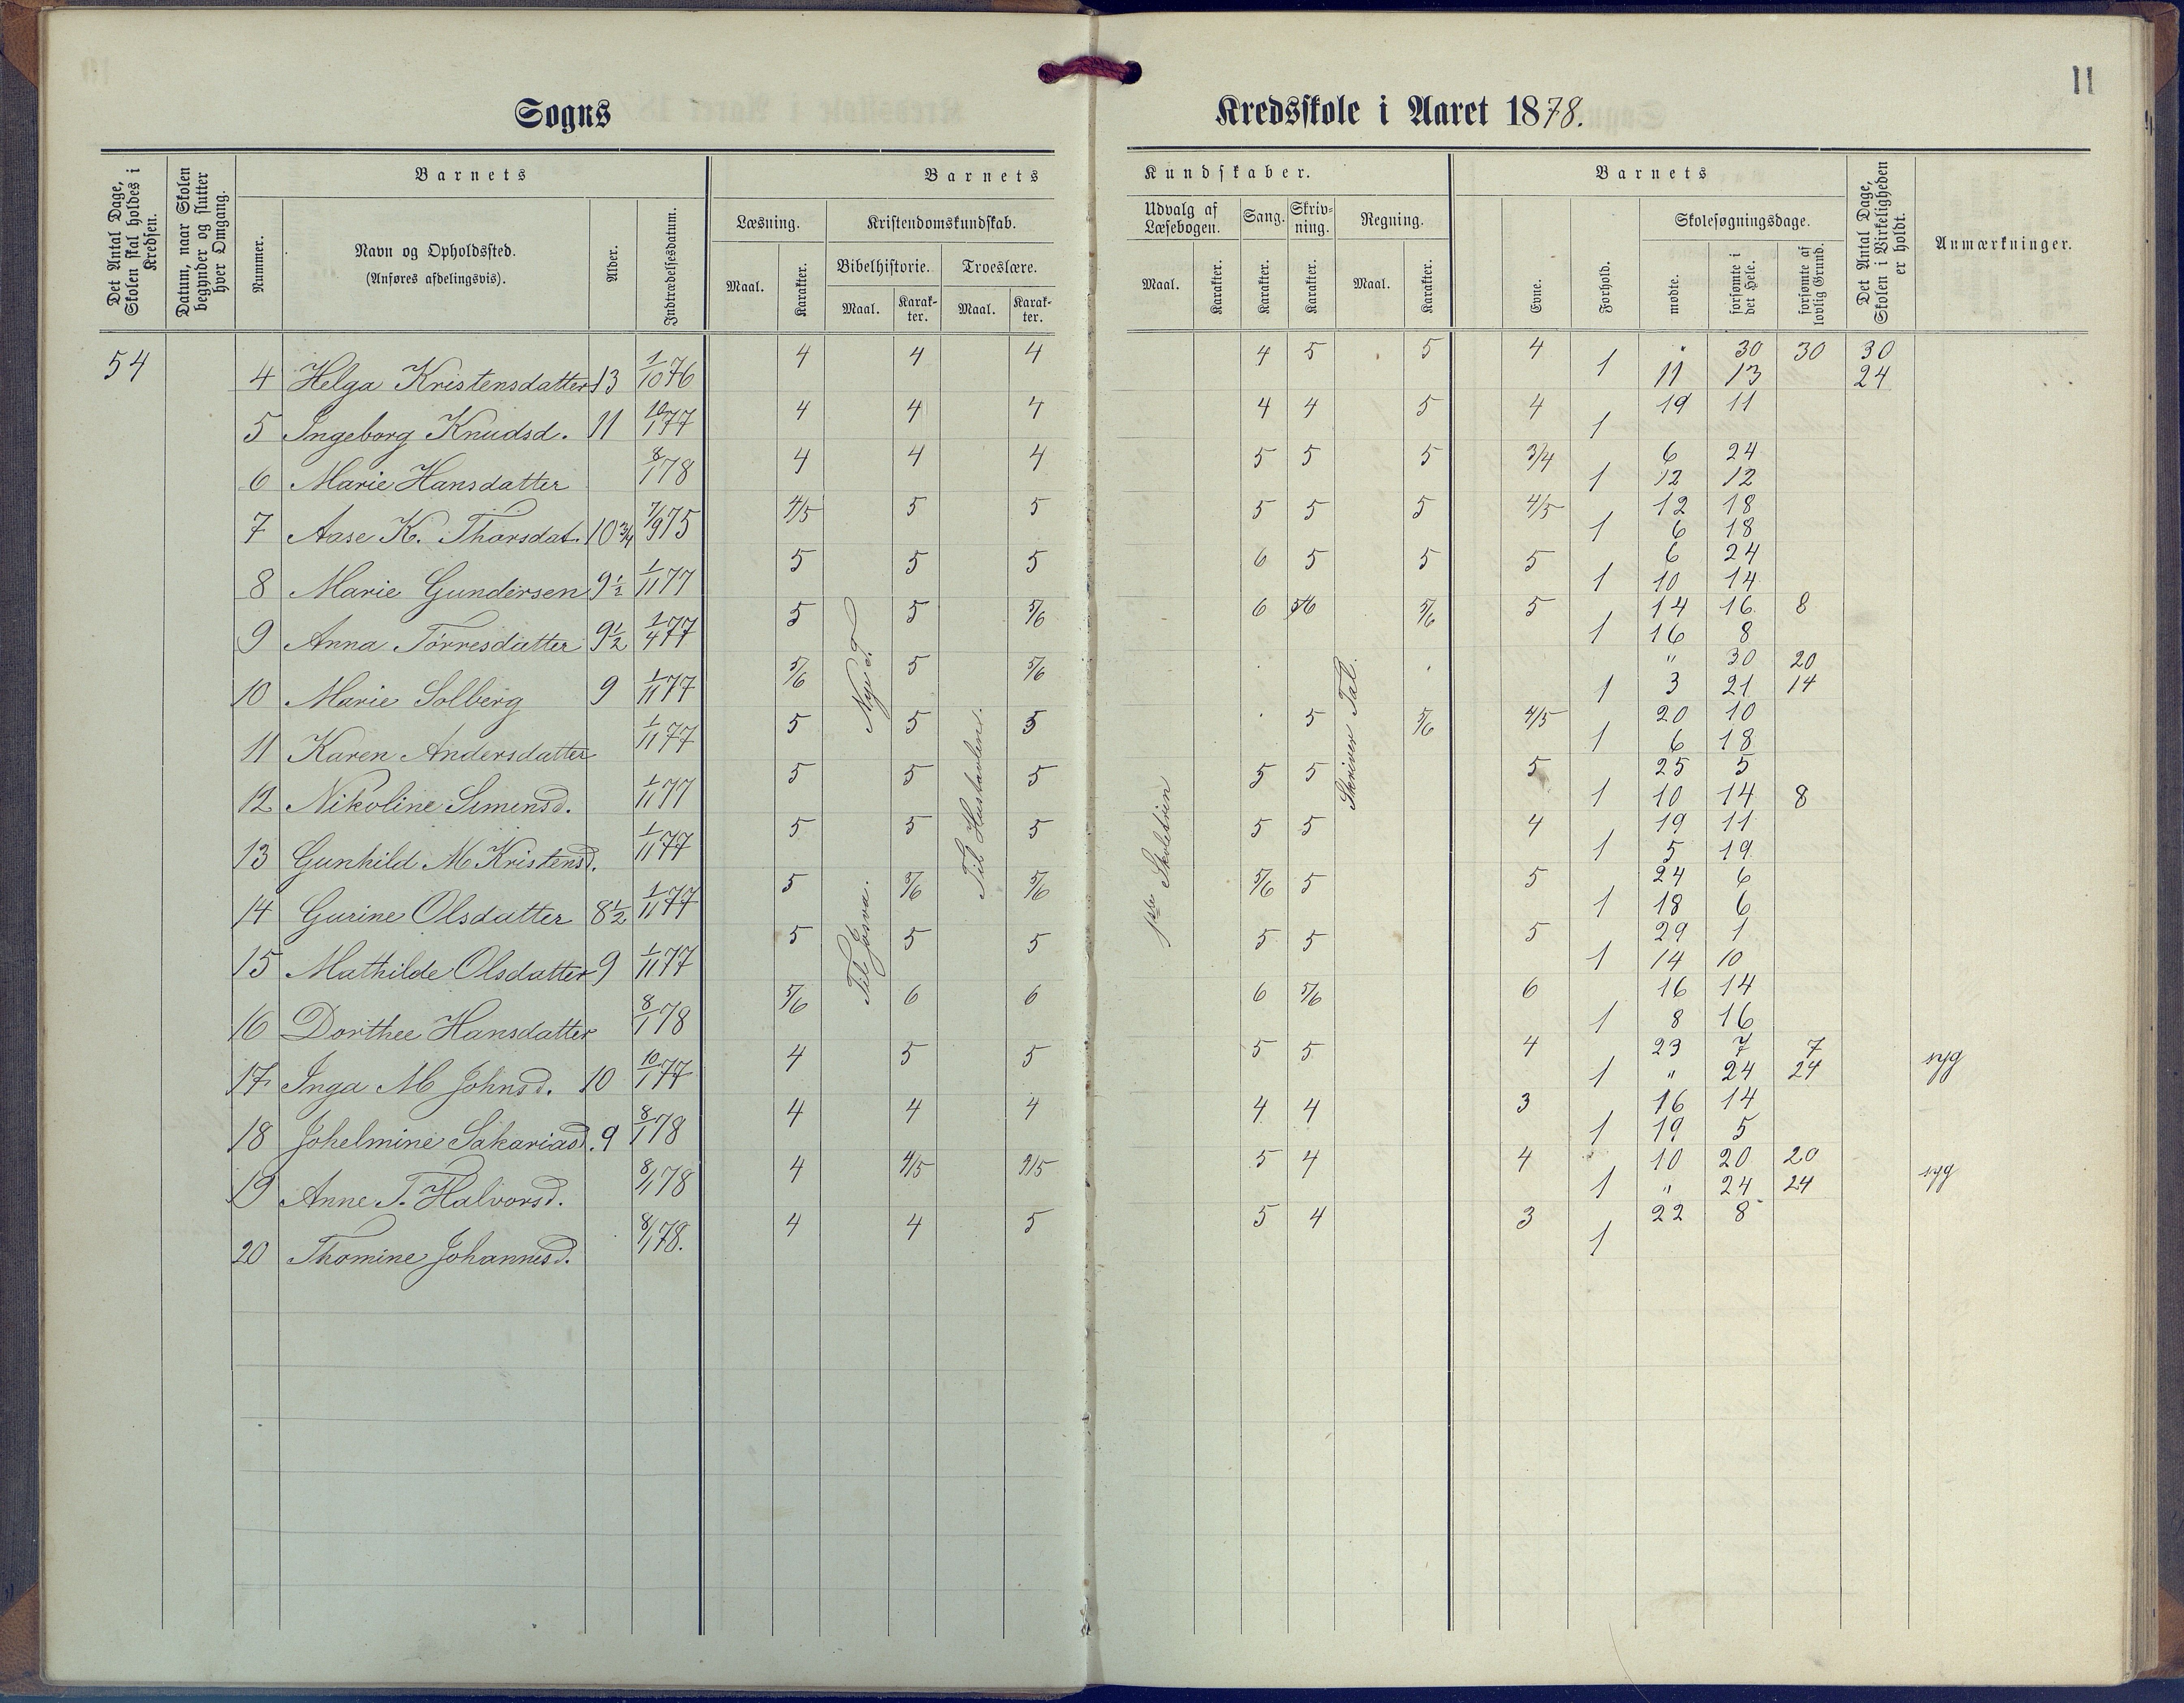 11
Sogns Kredsskole i Aaret 1878.
Det Antal Dage, Skolen skal holdes i Kredsen.
Datum, naar Skolen begynder og slutter hver Omgang.
Barnets
Nummer.
Navn og Opholdssted. (Anføres afdelingsvis).
Alder.
Indtrædelsesdatum.
Barnets Kundskaber.
Læsning.
Maal. Karakter.
Kristendomskundskab.
Bibelhistorie. Troeslære.
Maal. Karakter. Maal. Karakter.
Udvalg af Læsebogen.
Maal. Karakter.
Sang. Karakter.
Skrivning. Karakter.
Regning.
Maal. Karakter.
Barnets
Evne.
Forhold.
Skolesøgningsdage.
mødte.
forsømte i det Hele.
forsømte af lovlig Grund.
Det Antal Dage, Skolen i Virkeligheden er holdt.
Anmærkninger.
54 4 Helga Kristensdatter 13 1/10 76 4 4 4 4 5 5 4 1 " 30 30 30
11 13 24
5 Ingeborg Knudsd. 11 10/1 77 4 4 4 4 4 5 4 1 19 11
6 Marie Hansdatter 8/1 78 4 4 4 5 5 5 3/4 1 6 24
12 12
7 Aase K. Thorsdat. 10 3/4 7/9 75 4/5 5 5 5 5 5 4/5 1 12 18
6 18
8 Marie Gundersen 9 1/2 1/11 77 5 5 5 6 5 5 5 1 6 24
10 14
9 Anna Törresdatter 9 1/2 1/4 77 5 5 5/6 6 5/6 5/6 5 1 14 16 8
16 8
10 Marie Solberg 9 1/11 77 5/6 5 5/6 1 " 30 20
3 21 14
11 Karen Andersdatter 1/11 77 5 5 5 5 5/6 4/5 1 20 10
6 18
12 Nikoline Simensd. 1/11 77 5 5 5 5 5 5 1 25 5
10 14 8
13 Gunhild M Kristensd. 1/11 77 5 5 5 5 5 4 1 19 11
5 19
14 Gurine Olsdatter 8 1/2 1/11 77 5 5/6 5/6 5/6 5 5 1 24 6
18 6
15 Mathilde Olsdatter 9 1/11 77 5 5 5 5 5 5 1 29 1
14 10
16 Dorthee Hansdatter 8/1 78 5/6 6 6 6 5/6 6 1 16 14
8 16
17 Inga M Johnsd. 10 10/1 77 4 5 5 5 5 4 1 23 7 7 syg
" 24 24
18 Johelmine Sakariasd. 9 8/1 78 4 4 4 4 4 3 1 16 14
19 5
19 Anne T. Halvorsd. 8/1 78 4 4/5 4/5 5 4 4 1 10 20 20 syg
" 24 24
20 Thomine Johannesd. 8/1 78. 4 4 5 5 4 3 1 22 8
Nye T
Til Josva.
Til Hustavlen.
1ste Skoletrin
Skriver Tal.